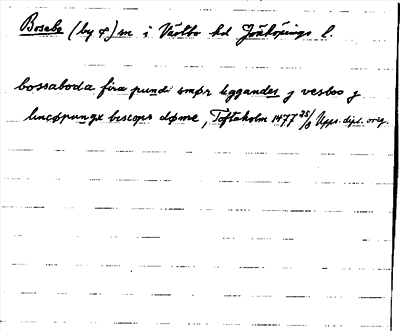 Bosebo (by &) sn i Västbo hd Jönköpings l.
bossaboda fira pund smør liggandes j vesboo j
lincøpungx biscops døme, Toftaholm 1477 25/8 Upps. dipl. orig.